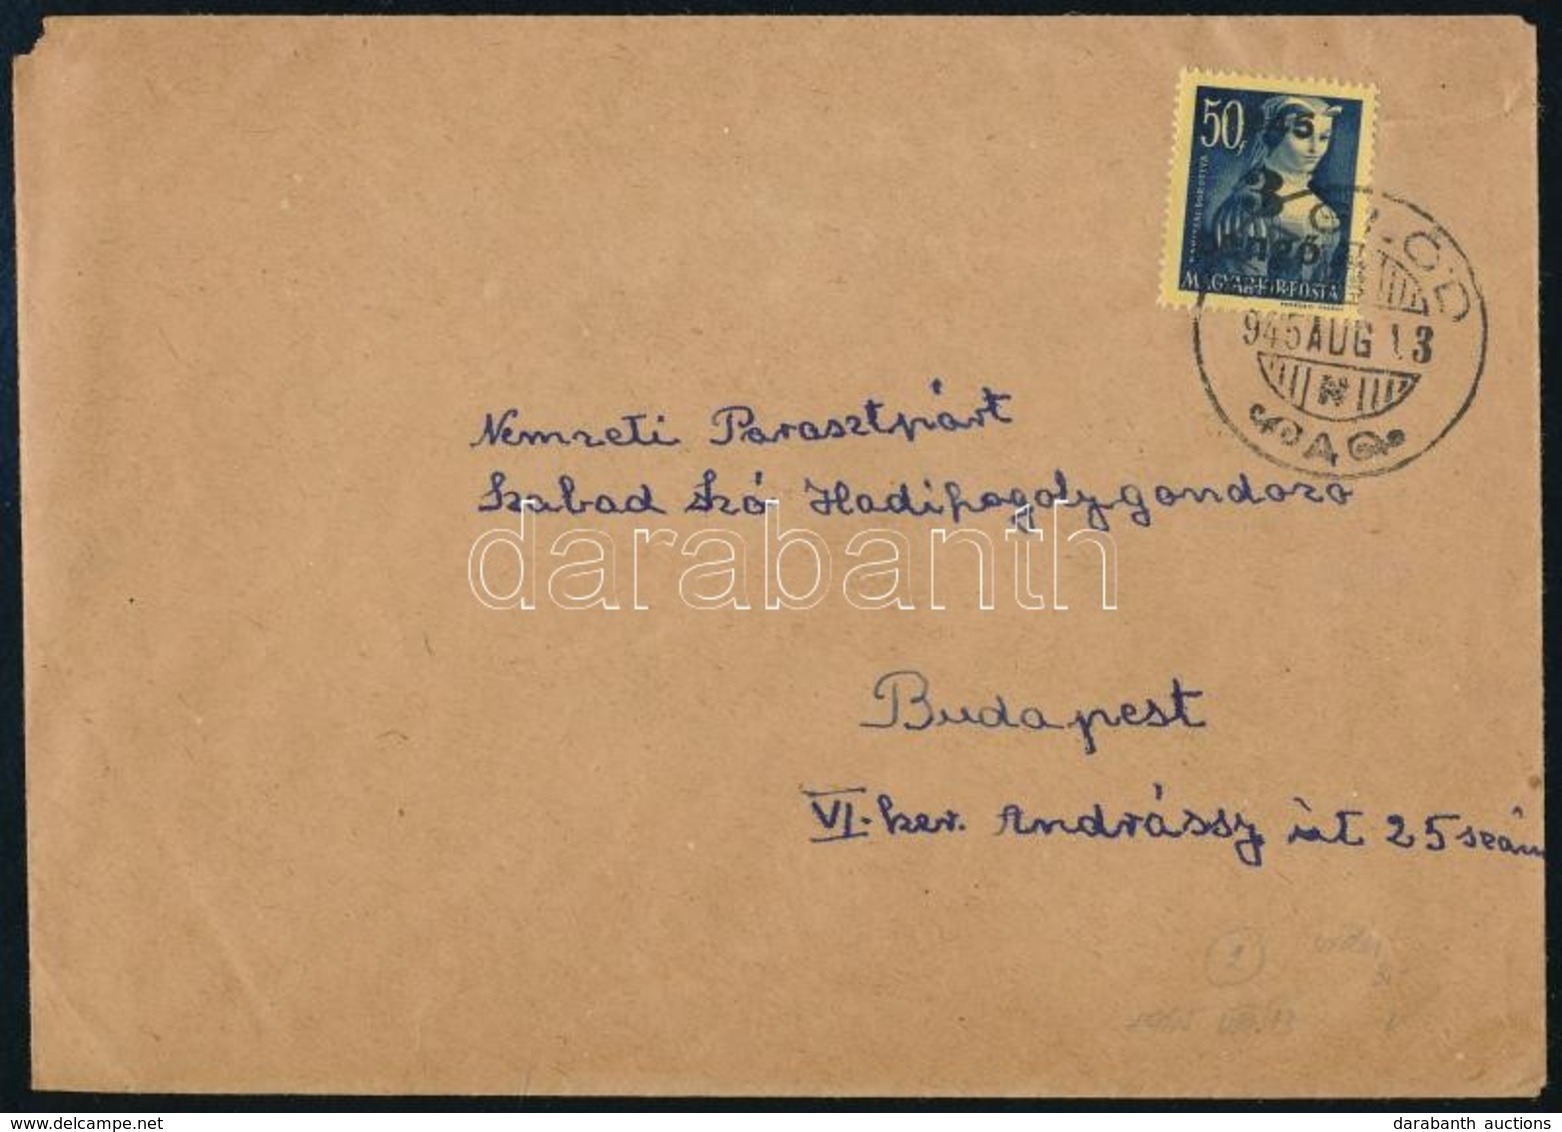 50f
1945.
3
pengő
KANIZSAI DOROTTYA
MAGYAR KIR. POSTA
945 AUG 13
N
Nemzeti Parasztpárt
Szabad Szó Hadifogolygondozo
darabanth
Budapest
VI. ker. Andrássy út 25 szám
darabanth auctions